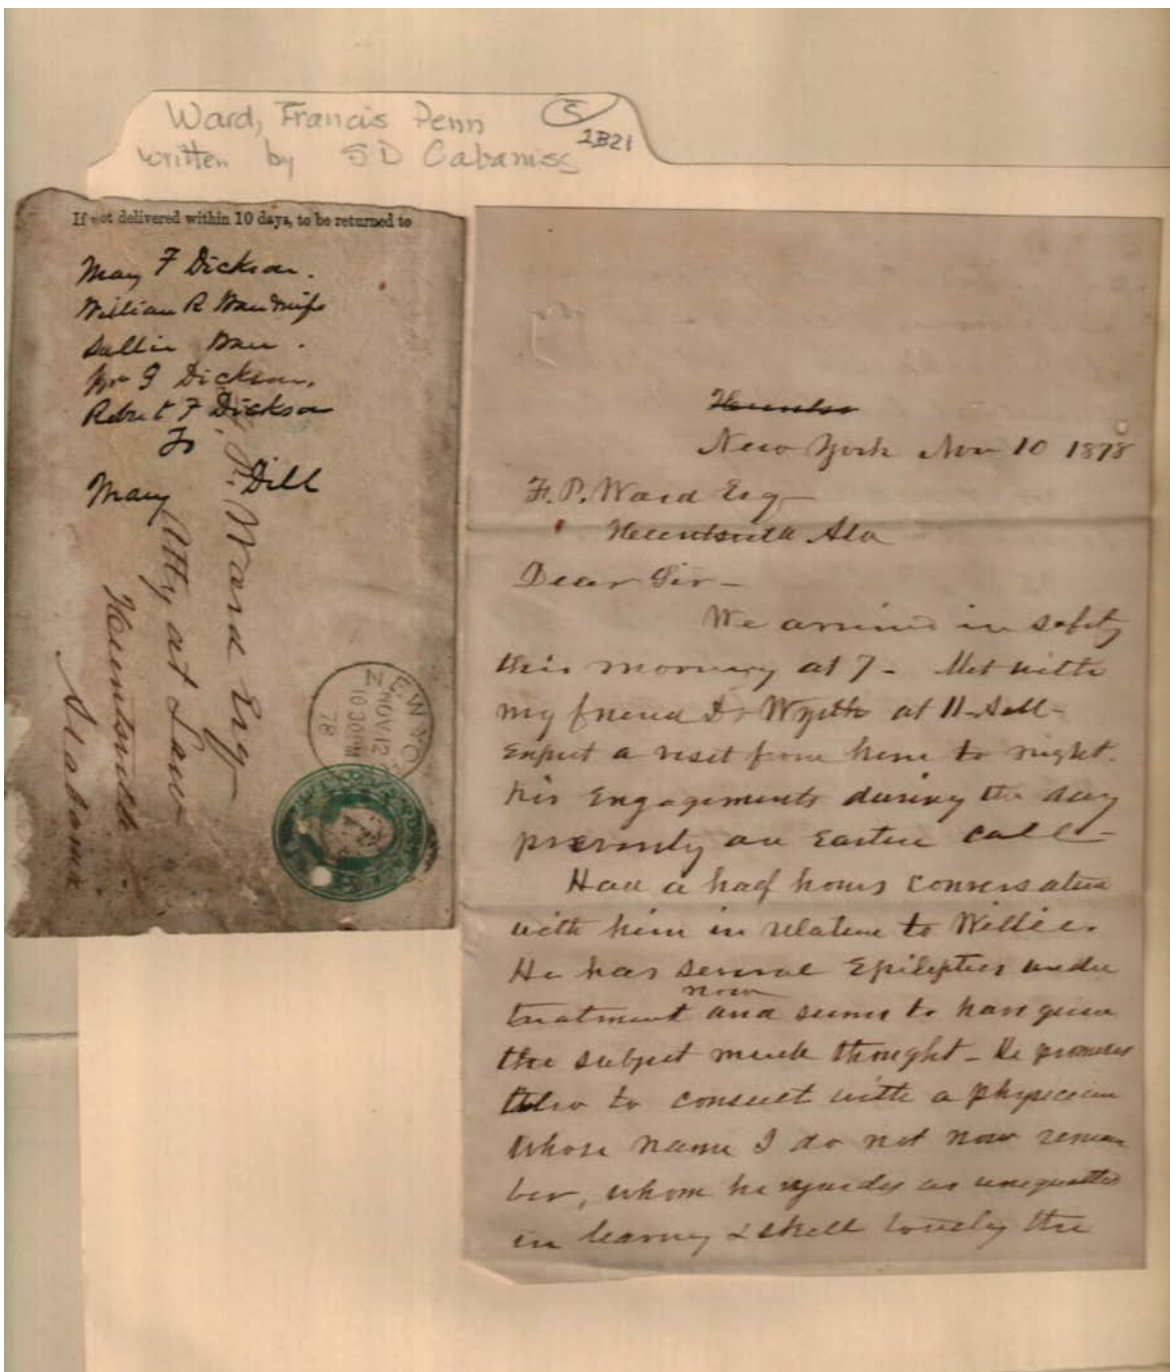 Ward, Francis Penn
5
2B21
written by S D Cabaniss
If not delivered within 10 days, to be returned to
Mary F Dickson.
William R
Sallie
Wm J Dickson,
Robert F Dickson
To
Mary Dill
F. P. Ward Esq
Atty at Law
Huntsville
Alabama
NEW YO
NOV 12
10 30 AM
78
Huntsv
New York Nov 10 1878
F. P. Ward Esq
Huntsville Ala
Dear Sir—
We arrived in safety
this morning at 7 - Met with
my friend Dr Wyeth at 11.
Expect a visit from him to night.
his Engagements during the day
an call—
Had a half hours conversation
with him in relation to Willie.
He has several Epileptics under
now
treatment and seems to have given
the subject much thought - He promises
also to consult with a physician
whose name I do not now remem
ber, whom he regards as unequalled
in learning & skill the